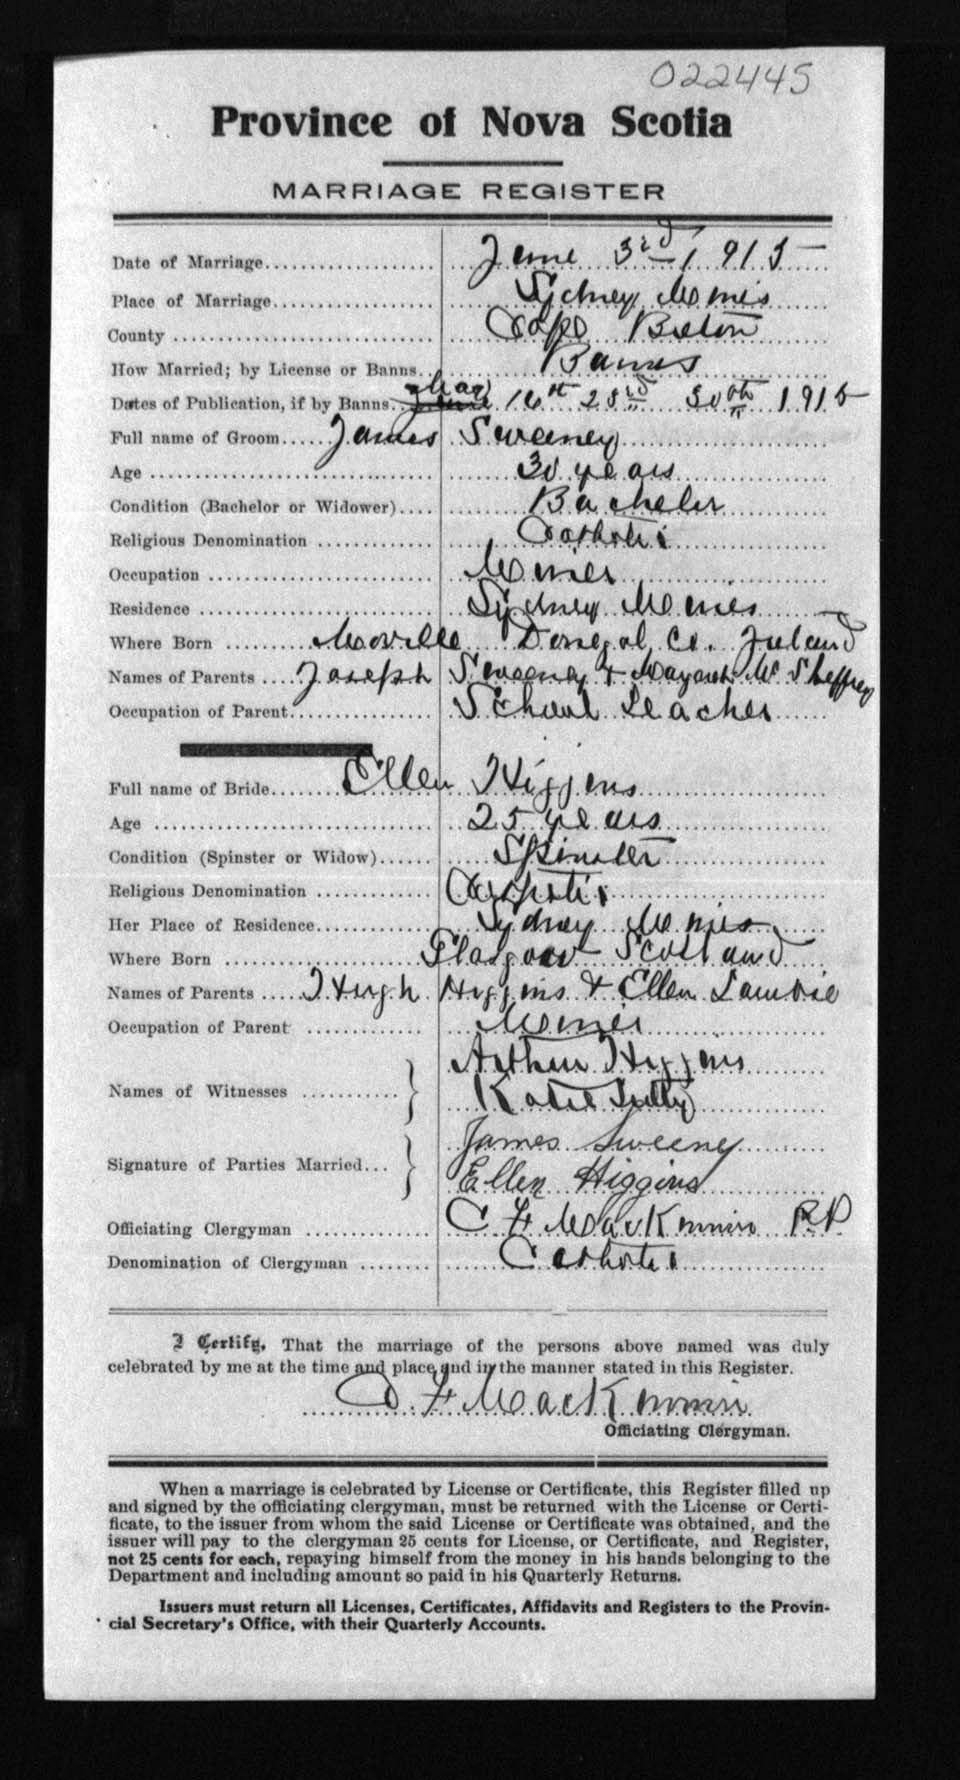 022445
Province of Nova Scotia
MARRIAGE REGISTER
Date of Marriage June 3rd 1915
Place of Marriage Sydney Mines
County Cape Breton
How Married; by License or Banns Banns
Dates of Publication, if by Banns May 16th 23rd 30th 1915
Full name of Groom James Sweeney
Age 30 years
Condition (Bachelor or Widower) Bachelor
Religious Denomination Catholic
Occupation Miner
Residence Sydney Mines
Where Born Moville Donegal Co. Ireland
Names of Parents Joseph Sweeney + Margaret Mc Sheffrey
Occupation of Parent School Teacher
Full name of Bride Ellen Higgins
Age 25 years
Condition (Spinster or Widow) Spinster
Religious Denomination Catholic
Her Place of Residence Sydney Mines
Where Born Glasgow Scotland
Names of Parents Hugh Higgins + Ellen Lambie
Occupation of Parent Miner
Names of Witnesses Arthur Higgins
Katie
Signature of Parties Married James Sweeney
Ellen Higgins
Officiating Clergyman C F MacKinnon P.P.
Denomination of Clergyman Catholic
I Certify, That the marriage of the persons above named was duly
celebrated by me at the time and place and in the manner stated in this Register.
C F MacKinnon
Officiating Clergyman.
When a marriage is celebrated by License or Certificate, this Register filled up
and signed by the officiating clergyman, must be returned with the License or Certi-
ficate, to the issuer from whom the said License or Certificate was obtained, and the
issuer will pay to the clergyman 25 cents for License, or Certificate, and Register,
not 25 cents for each, repaying himself from the money in his hands belonging to the
Department and including amount so paid in his Quarterly Returns.
Issuers must return all Licenses, Certificates, Affidavits and Registers to the Provin-
cial Secretary's Office, with their Quarterly Accounts.